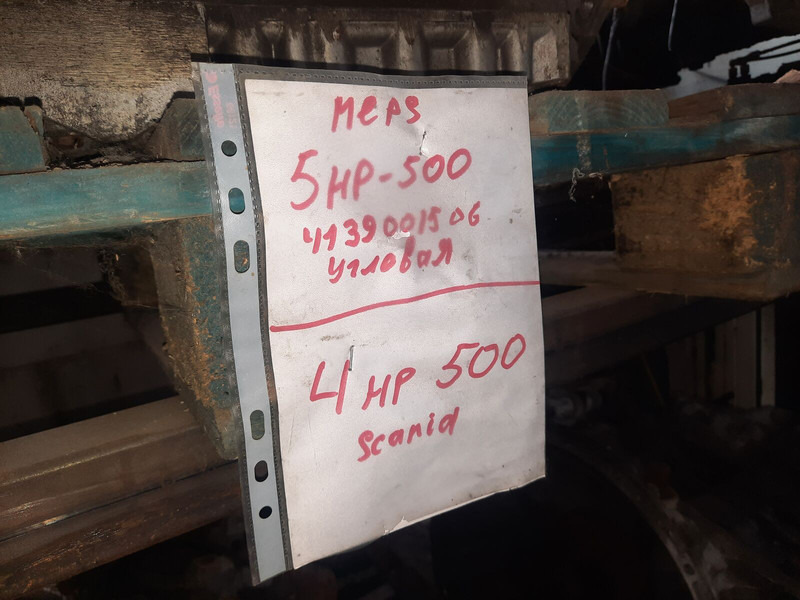 МЕРS
5HP-500
4139001506
угловая
4 HP 500
Scania